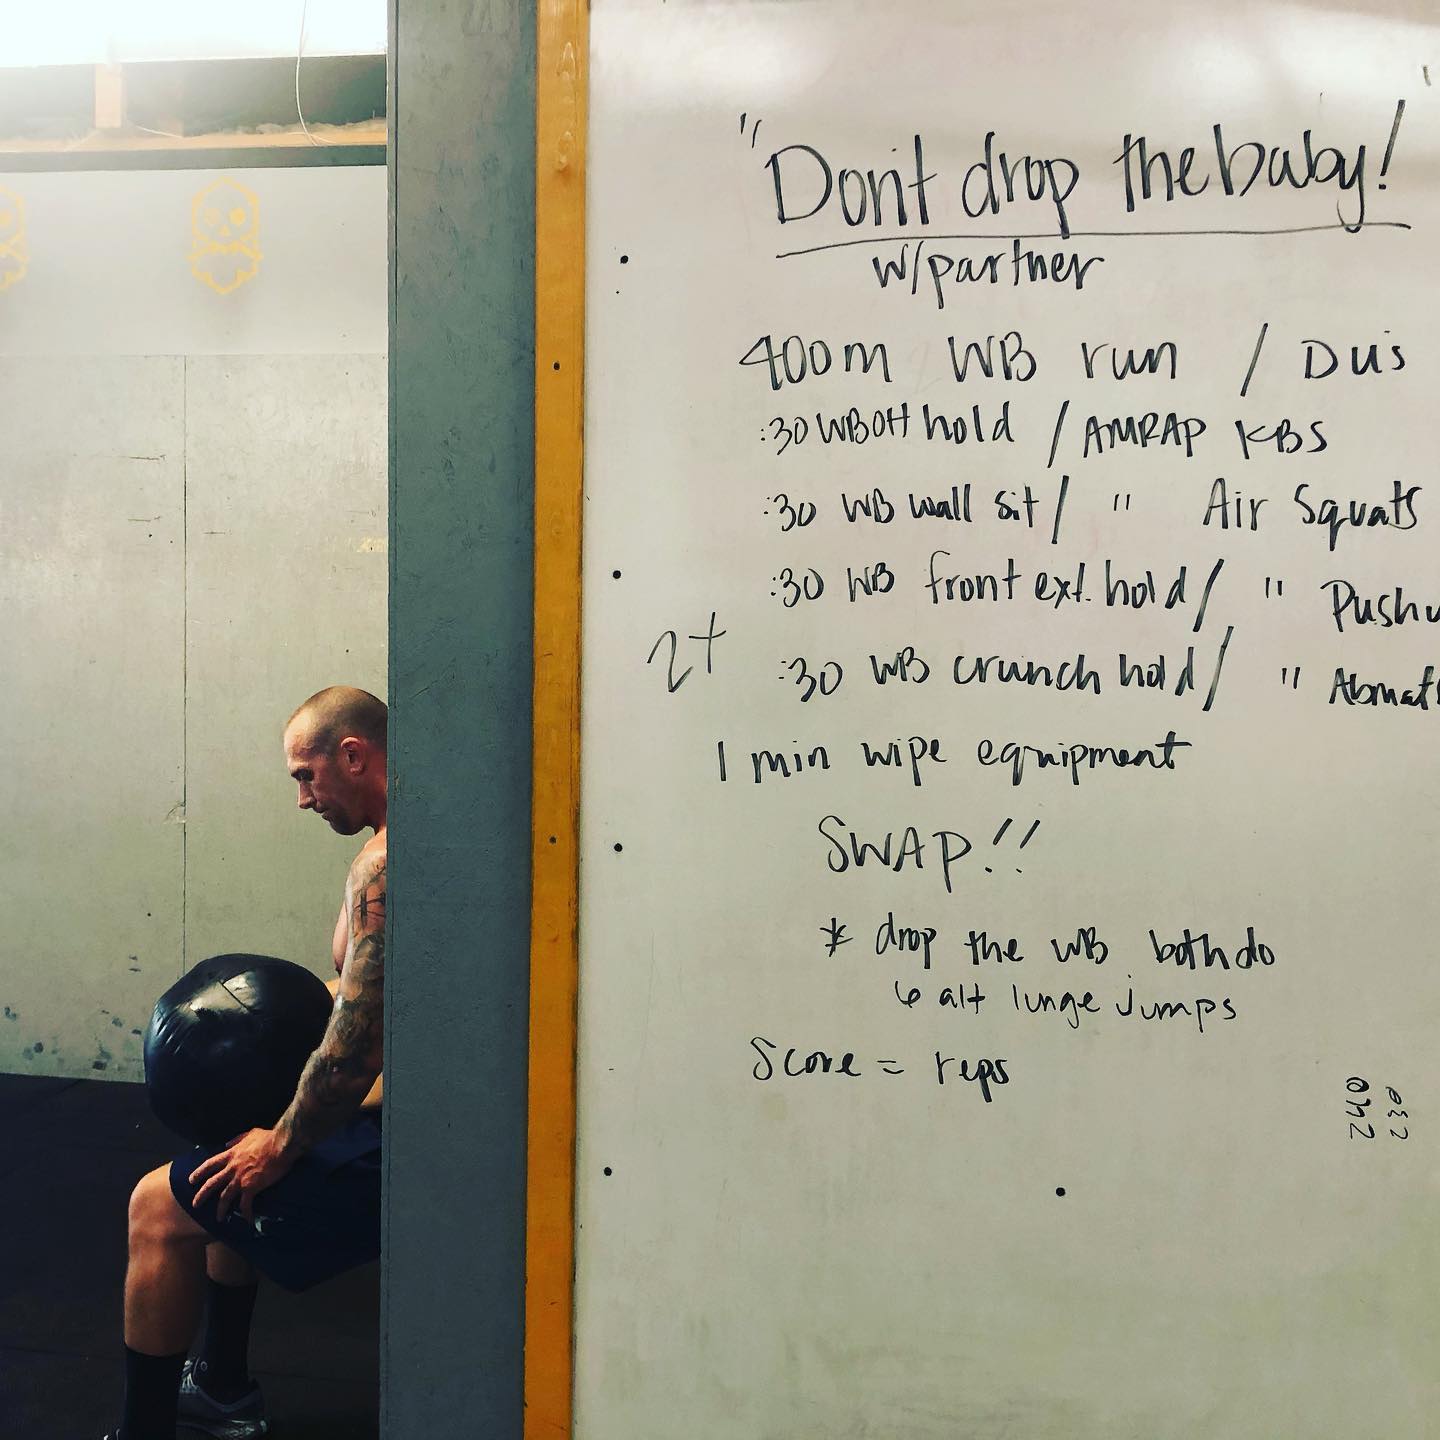 "Don't drop the baby!
w/partner
400m WB run / DU's
:30 WBOH hold / AMRAP KBS
:30 WB wall sit / " Air Squats
:30 WB front ext. hold / " Pushu
:30 WB crunch hold / " Abmat
1 min wipe equipment
SWAP!!
* drop the WB both do
6 alt lunge jumps
Score = reps